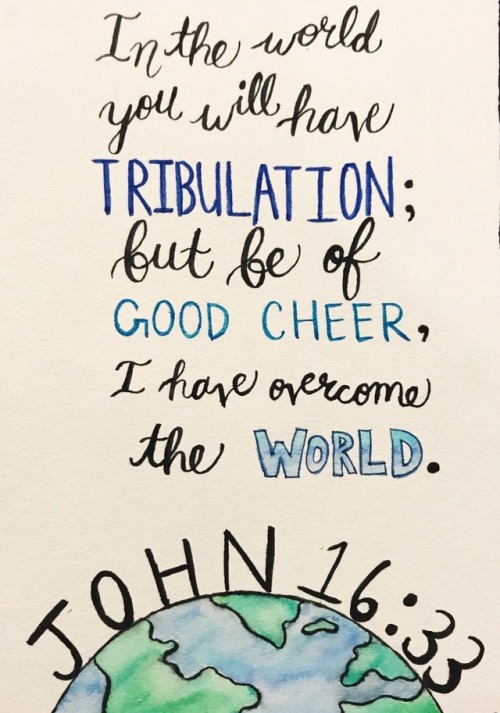 In the world
you will have
TRIBULATION;
but be of
GOOD CHEER,
I have overcome
the WORLD.
JOHN 16:33